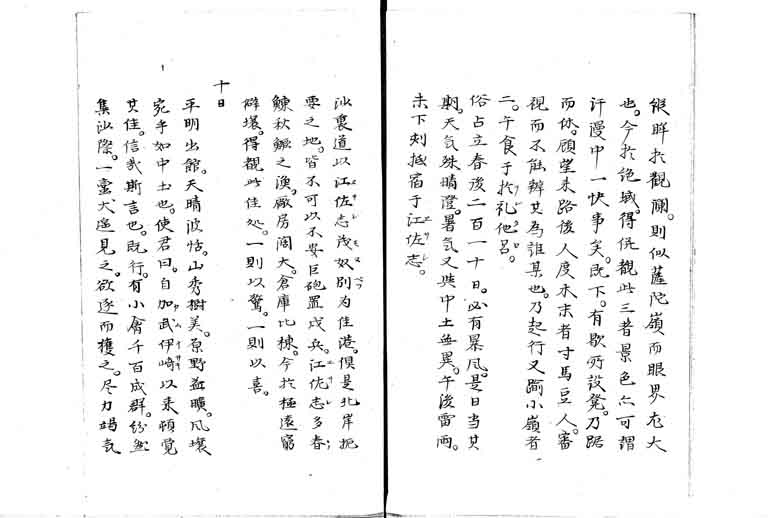 縱眸於觀瀾。則似薩陀嶺而眼界尤大
也。今於絶域。得併觀此三者景色。亦可謂
汗漫中一快事矣。既下。有歇所設凳。乃踞
而休。顧望来路後人度未末者寸馬豆人。審
視而不能辨其為誰某也。乃起行又踰小嶺者
二。午食于於礼他呂。
俗占立春後二百一十日。必有暴風。是日当其
期。天気殊晴澄。暑気又与中土無異。午後雷雨。
未下刻抵宿于江佐志。
沙裏道以江佐志茂奴別為佳港。俱是北岸扼
要之地。皆不可以不安巨砲置戍兵。江佐志多春
鰊秋鱖之漁。廠房闊大。倉庫比棟。今於極遠窮
僻壌。得観此佳処。一則以驚。一則以喜。
十日
平明出館。天晴波恬。山秀樹美。原野益曠。風壌
宛乎如中土也。使君曰。自加武伊崎以来頓覚
其佳。信哉斯言也。既行。有小禽千百成群。紛然
集沙際。一霊犬遥見之。欲逐而獲之。尽力竭気